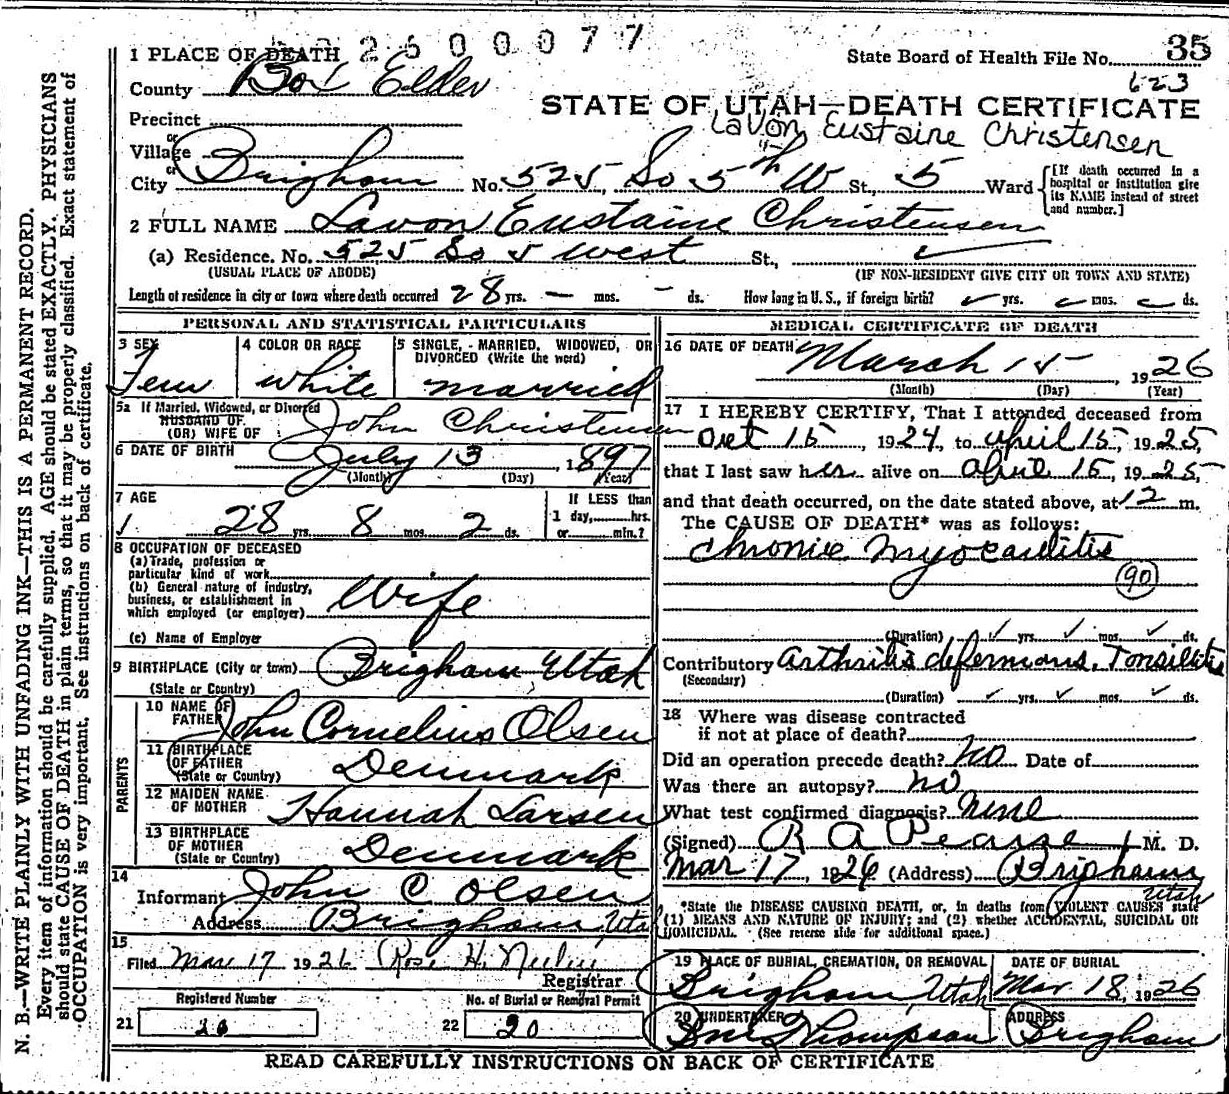 2600077
1 PLACE OF DEATH
State Board of Health File No. 35
County Box Elder
623
STATE OF UTAH—DEATH CERTIFICATE
Precinct
Lavon Eustaine Christensen
or
Village
or
City Brigham No. 525, So 5th W St., 5 Ward
[If death occurred in a
hospital or institution give
its NAME instead of street
and number.]
2 FULL NAME Lavon Eustaine Christensen
(a) Residence. No. 525 So 5 West St.,
(USUAL PLACE OF ABODE) (IF NON-RESIDENT GIVE CITY OR TOWN AND STATE)
Length of residence in city or town where death occurred 28 yrs. — mos. - ds. How long in U.S., if foreign birth? yrs. mos. ds.
PERSONAL AND STATISTICAL PARTICULARS
3 SEX
Fem
4 COLOR OR RACE
white
5 SINGLE, MARRIED, WIDOWED, OR
DIVORCED (Write the word)
married
5a If Married, Widowed, or Divorced
HUSBAND OF
(OR) WIFE OF John Christensen
6 DATE OF BIRTH July 13, 1897
(Month) (Day) (Year)
7 AGE
28 yrs. 8 mos. 2 ds.
If LESS than
1 day, hrs.
or min.?
8 OCCUPATION OF DECEASED
(a) Trade, profession or
particular kind of work
(b) General nature of industry,
business, or establishment in
which employed (or employer) Wife
(c) Name of Employer
9 BIRTHPLACE (City or town) Brigham Utah
(State or Country)
PARENTS
10 NAME OF
FATHER John Cornelius Olsen
11 BIRTHPLACE
OF FATHER
(State or Country) Denmark
12 MAIDEN NAME
OF MOTHER Hannah Larsen
13 BIRTHPLACE
OF MOTHER
(State or Country) Denmark
14
Informant John C Olsen
Address Brigham, Utah
15
Filed Mar 17 1926 Rose H.
Registrar
Registered Number
21 20
No. of Burial or Removal Permit
22 20
MEDICAL CERTIFICATE OF DEATH
16 DATE OF DEATH
March 15, 1926
(Month) (Day) (Year)
17 I HEREBY CERTIFY, That I attended deceased from
Oct 15, 1924, to April 15, 1925,
that I last saw her alive on April 15, 1925,
and that death occurred, on the date stated above, at 12 m.
The CAUSE OF DEATH* was as follows:
Chronic Myocarditis
90
(Duration) yrs. mos. ds.
Contributory Arthritis deformans, Tonsilitis
(Secondary)
(Duration) yrs. mos. ds.
18 Where was disease contracted
if not at place of death?
Did an operation precede death? No Date of
Was there an autopsy? no
What test confirmed diagnosis? none
(Signed) R A Pearse, M. D.
Mar 17, 1926 (Address) Brigham
Utah
*State the DISEASE CAUSING DEATH, or, in deaths from VIOLENT CAUSES state
(1) MEANS AND NATURE OF INJURY; and (2) whether ACCIDENTAL, SUICIDAL OR
HOMICIDAL. (See reverse side for additional space.)
19 PLACE OF BURIAL, CREMATION, OR REMOVAL
Brigham Utah
DATE OF BURIAL
Mar 18, 1926
20 UNDERTAKER
Thompson
ADDRESS
Brigham
READ CAREFULLY INSTRUCTIONS ON BACK OF CERTIFICATE
N. B.—WRITE PLAINLY WITH UNFADING INK—THIS IS A PERMANENT RECORD.
Every item of information should be carefully supplied. AGE should be stated EXACTLY. PHYSICIANS
should state CAUSE OF DEATH in plain terms, so that it may be properly classified. Exact statement of
OCCUPATION is very important. See instructions on back of certificate.